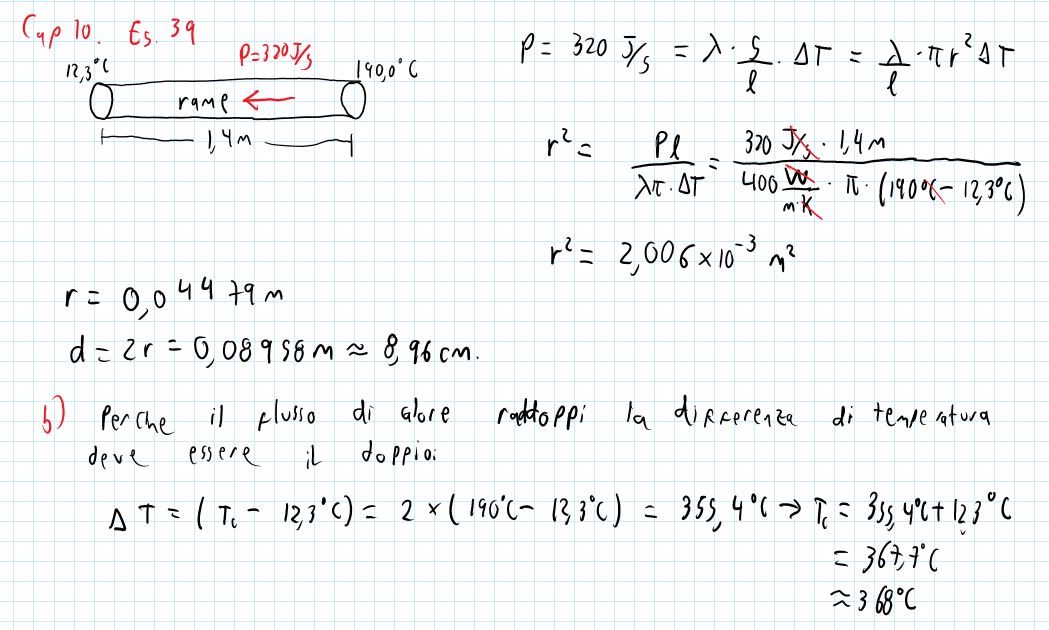 Cap 10. Es. 39
P = 320 J/s
12,3°C
190,0°C
rame
1,4 m
P = 320 J/s = λ · S/l · ΔT = λ/l · πr² ΔT
r² = Pl/(λπ · ΔT) = (320 J/s · 1,4 m)/(400 W/(m·K) · π · (190°C - 12,3°C))
r² = 2,006 × 10⁻³ m²
r = 0,04479 m
d = 2r = 0,08958 m ≈ 8,96 cm.
b) Perche il flusso di calore raddoppi la differenza di temperatura
deve essere il doppio:
ΔT = (Tc - 12,3°C) = 2 × (190°C - 12,3°C) = 355,4°C → Tc = 355,4°C + 12,3°C
= 367,7°C
≈ 368°C